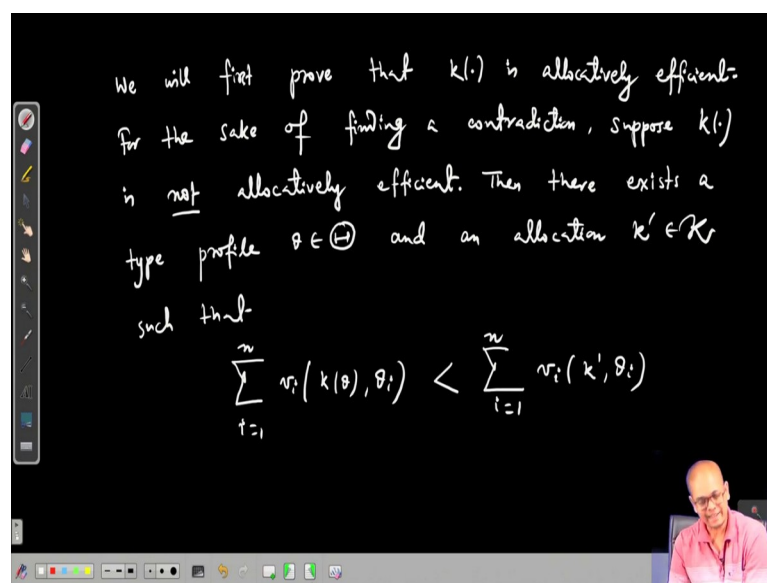 We will first prove that k(·) is allocatively efficient.
For the sake of finding a contradiction, suppose k(·)
is not allocatively efficient. Then there exists a
type profile θ ∈ Θ and an allocation k' ∈ 𝒦
such that
n n
∑ vᵢ(k(θ), θᵢ) < ∑ vᵢ(k', θᵢ)
i=1 i=1